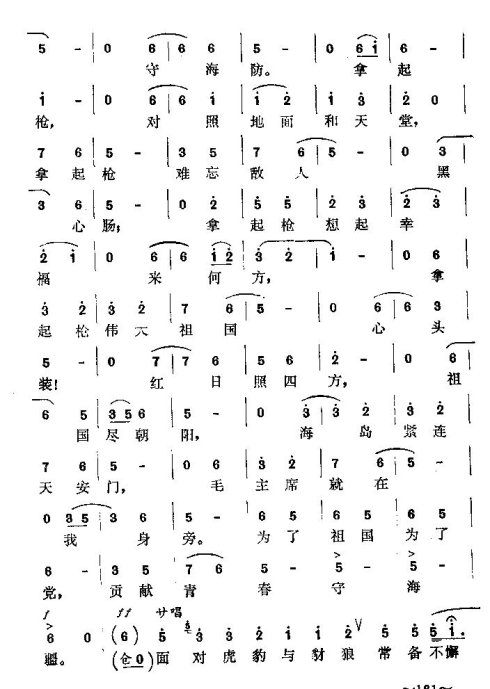 5 - | 0 6 | 6 6 | 5 - | 0 6 i | 6 -
守海防。拿起
i - | 0 6 | 6 i | i 2 | i 3 | 2 0
枪，对照地面和天堂，
7 6 | 5 - | 3 5 | 7 6 | 5 - | 0 3
拿起枪难忘敌人黑
3 6 | 5 - | 0 2 | 5 5 | 2 2 | 2 3
心肠；拿起枪想起幸
2 i | 0 6 | 6 i 2 | 3 2 | i - | 0 6
福来何方，拿
3 2 | 3 2 | 7 6 | 5 - | 0 6 | 6 3
起枪伟大祖国心头
5 - | 0 7 | 7 6 | 5 6 | 2 - | 0 6
装！红日照四方，祖
6 5 | 3 5 6 | 5 - | 0 3 | 3 2 | 3 2
国尽朝阳，海岛紧连
7 6 | 5 - | 0 6 | 3 2 | 7 6 | 5 -
天安门，毛主席就在
0 3 5 | 3 6 | 5 - | 6 5 | 6 5 | 6 5
我身旁。为了祖国为了
6 - | 3 5 | 7 6 | 5 - | 5 - | 5 -
党，贡献青春守海
f ff サ唱
6 0 (6) 5 3 3 2 2 3 2 5 5 5 i.
疆。（仓0）面对虎豹与豺狼常备不懈
～181～